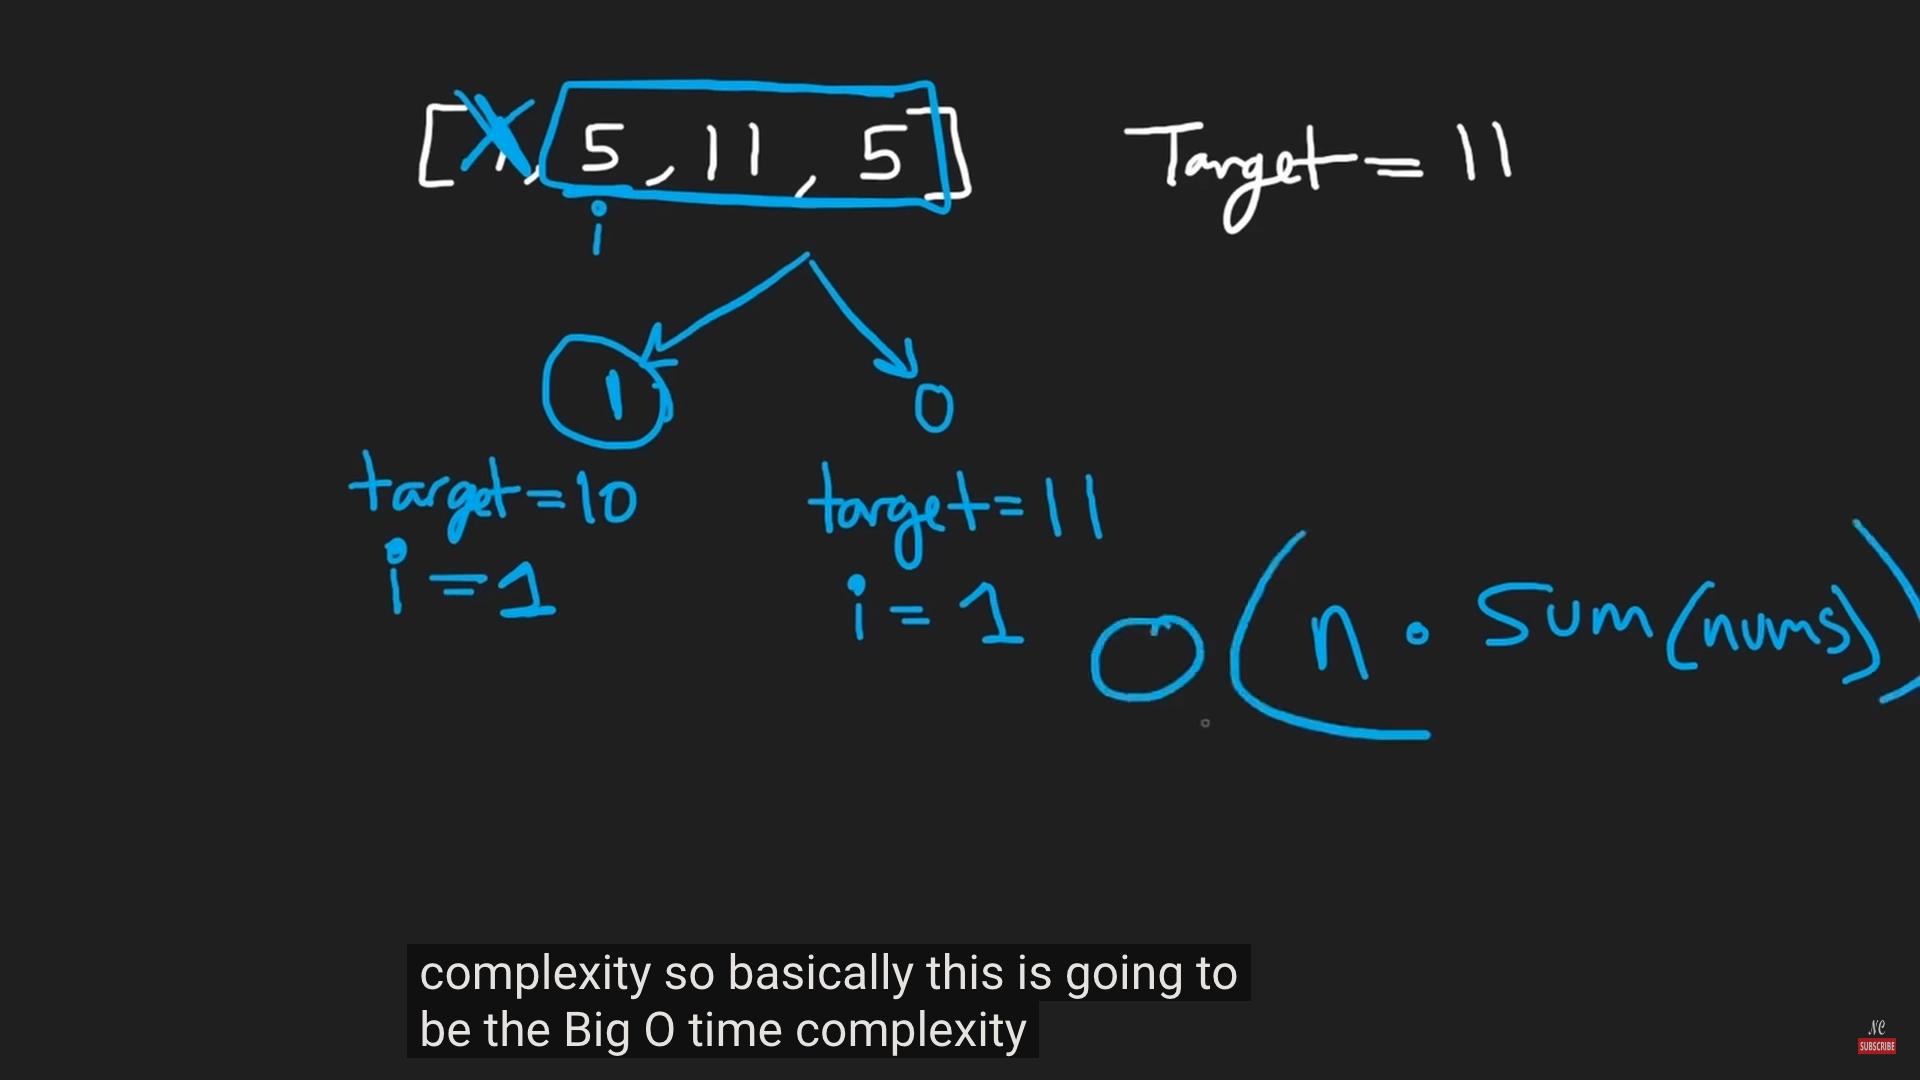 [ 1, 5, 11, 5 ] Target = 11
i
1 0
target = 10 target = 11
i = 1 i = 1
O(n • Sum(nums))
complexity so basically this is going to
be the Big O time complexity
NC
SUBSCRIBE